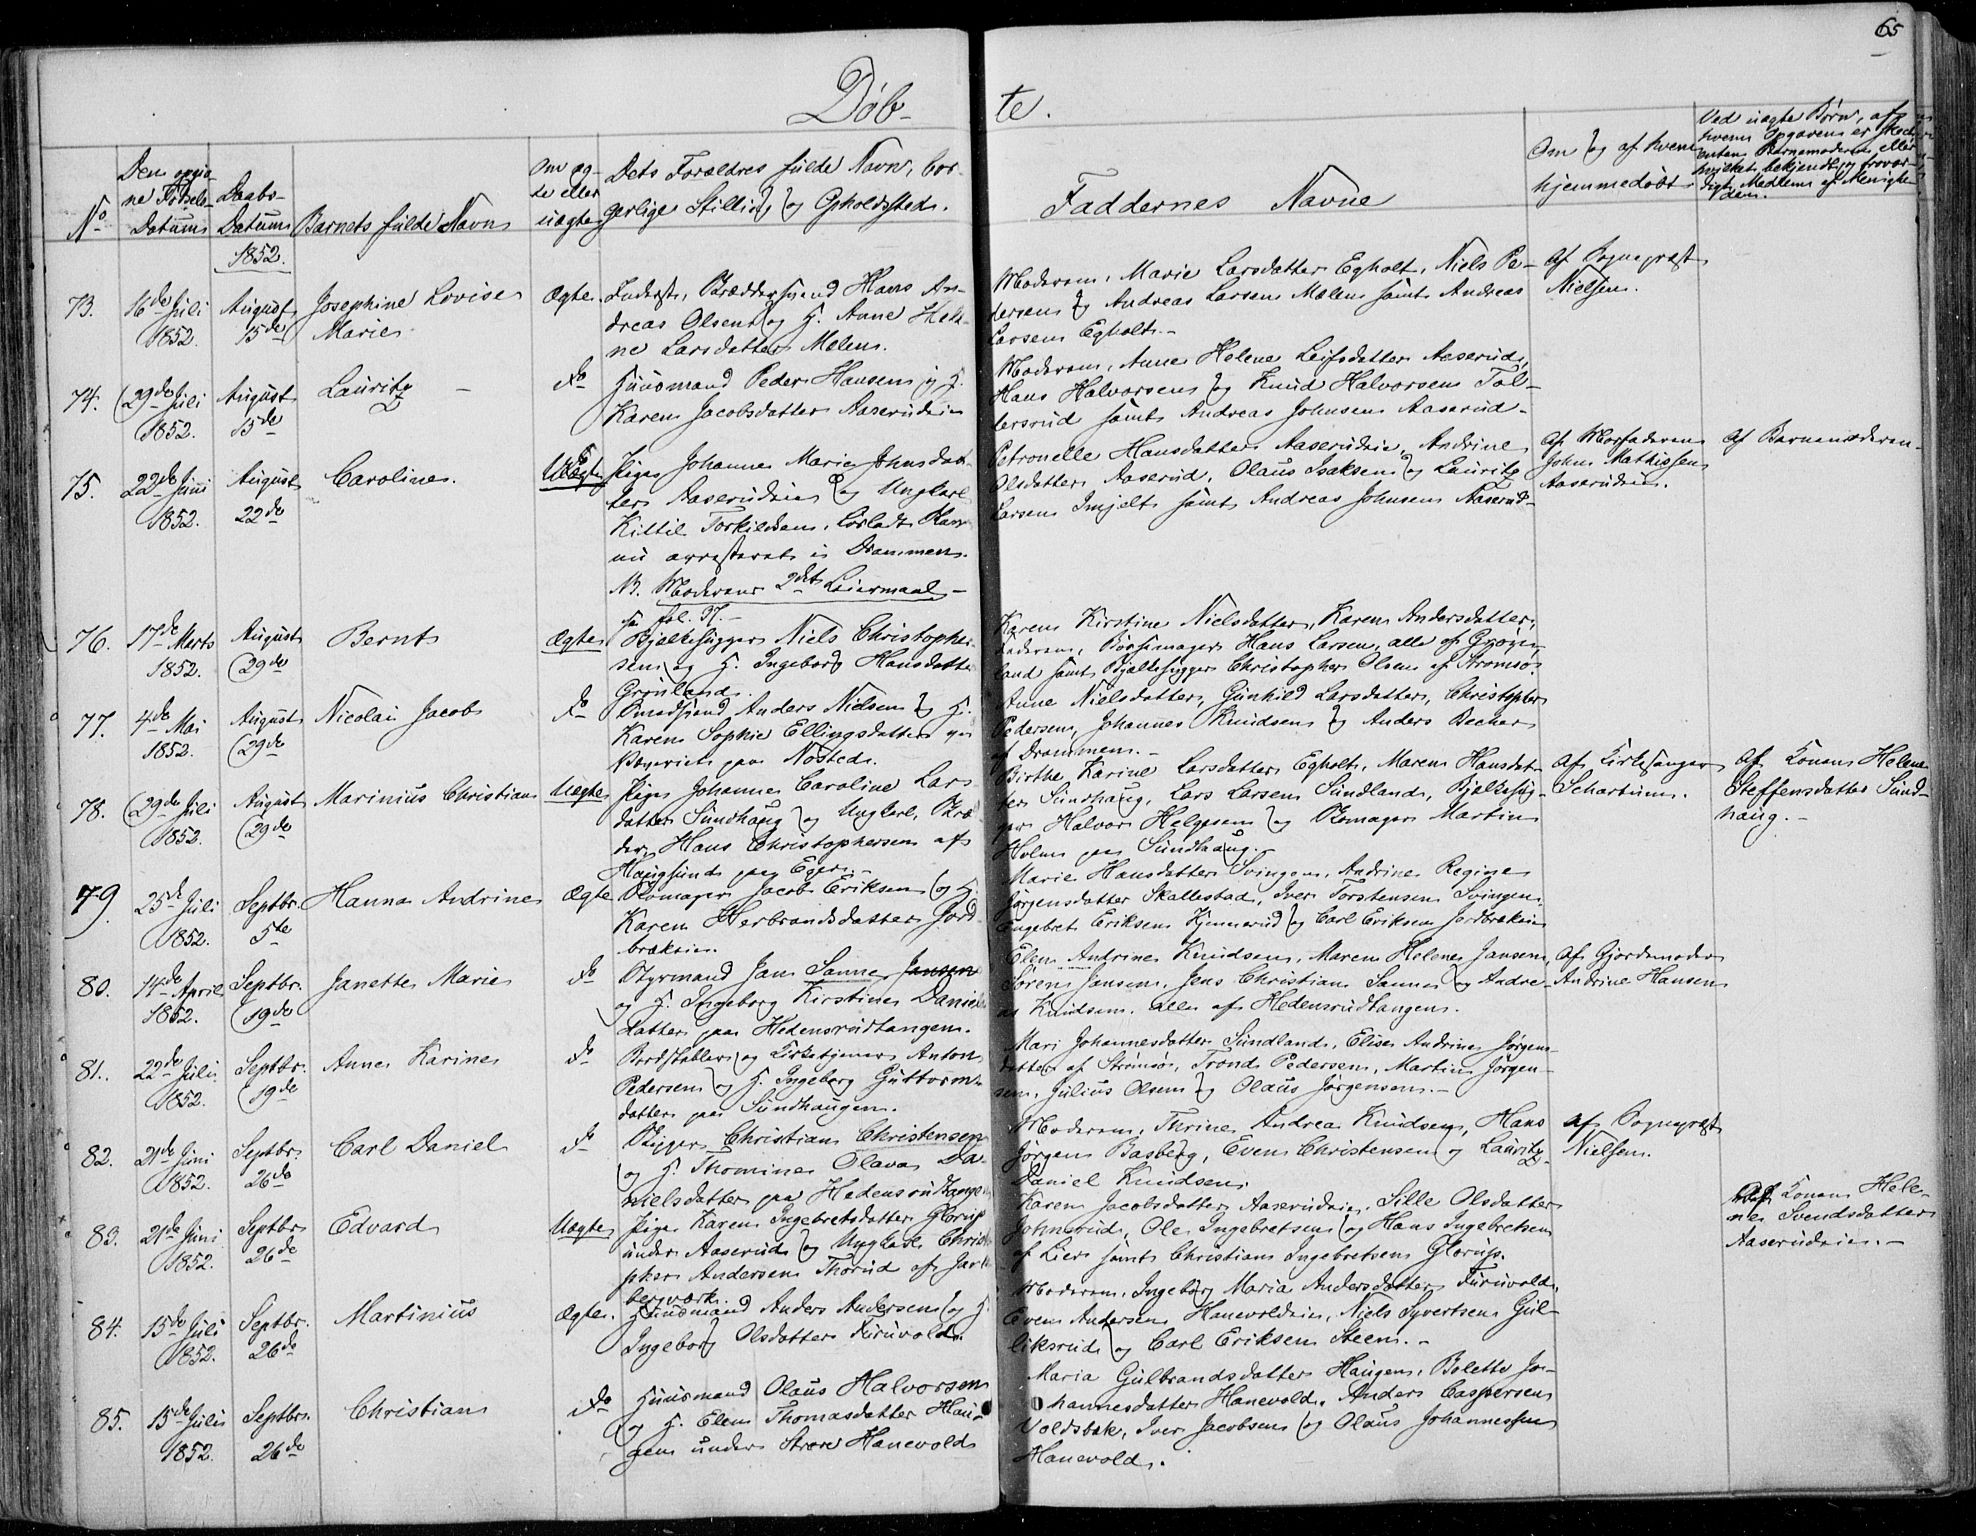 65
Døbte.
No
Den opgivne Fødsels Datum
Daabs-Datum
1852.
Barnets fulde Navn
Om ægte eller uægte
Dets Forældres fulde Navne, borgerlige Stilling og Opholdssted.
Faddernes Navne
Om og af hvem hjemmedøbt
Ved uægte Børn, af hvem Opgaven er skeet
enten Barnemoderen eller
hvilket bekjendt og troværdigt Medlem af Menigheden.
73.
16de Juli
1852.
August
15de
Josephine Lovise
Marie
Ægte
Inderst, Bræddermand Hans An-
dreas Olsen og H. Anne Hele-
ne Larsdatter Melen.
Moderen, Marie Larsdatter Egholt, Niels Pe-
dersen og Andreas Larsen Melen samt Andreas
Larsen Egholt.-
af Sognepræst
Nielsen.
74.
29de Juli
1852.
August
15de
Lauritz
do
Huusmand Peder Hansen og H.
Karen Jacobsdatter Aaserudeie
Moderen, Anne Helene Leifsdatter Aaserud,
Hans Halvorsen og Knud Halvorsen Tol-
lersrud samt Andreas Johnsen Aaserud-
75.
22de Juni
1852.
August
22de
Caroline.
Uægte
Pige Johanne Marie Johnsdat-
ter Aaserudeie og Ungkarl
Kittil Torkildsen,
nu arresteret i Drammen.
NB. Moderens 2det Leiermaal-
se fol. 37.-
Petronelle Hansdatter Aaserudeie, Andrine
Olsdatter Aaserud, Olaus Isaksen og Lauritz
Larsen Imjelt samt Andreas Johnsen Aaserud-
af Morfaderen
John Mathissen
Aaserudeie.
Af Barnemoderen-
76.
17de Marts
1852.
August
29de
Bernt
Ægte
Bjelkehugger Niels Christopher-
sen og H. Ingeborg Hansdatter
Grønland.
Karen Kirstine Nielsdatter, Karen Andersdatter,
Faderen, Børsemager Hans Larsen, alle af Grøn-
land samt Bjelkehugger Christopher Olsen af Strømsø.
77.
4de Mai
1852.
August
29de
Nicolai Jacob
do
Smedsvend Anders Nielsen og H.
Karen Sophie Ellingsdatter ved
Væveriet paa Nøsted.
Anne Nielsdatter, Gunhild Larsdatter, Christopher
Pedersen, Johannes Knudsen og Anders Becker
af Drammen.-
78.
29de Juli
1852.
August
29de
Marinius Christian
Uægte
Pige Johanne Caroline Lars-
datter Sundhaug og Ungkarl,
Hans Christophersen af
Haugsund paa Eger.-
Birthe Karine Larsdatter Egholt, Maren Hansdat-
ter Sundhaug, Lars Larsen Sundland, Bjelkehug-
ger Halvor Helgesen og Skomager Martin
Holm paa Sundhaug.-
af Kirkesanger
Schartum.
Af Konen Helene
Steffensdatter Sund-
haug.-
79.
25de Juli
1852.
Septbr.
5te
Hanna Andrine
Ægte
Skomager Jacob Eriksen og H.
Karen Herbrandsdatter Jord-
brækeie.
Marie Hansdatter Svingen, Andrine Regine
Jørgensdatter Skallestad, Iver Torstensen Svingen,
Engebret Eriksen Hjennerud og Carl Eriksen Jordbrækeie
80.
14de April
1852.
Septbr.
19de
Janette Marie
do
Styrmand Jan Sanne Jansen
og H. Ingeborg Kirstine Daniels-
datter paa Hedensrudtangen.
Elen Andrine Knudsen, Maren Helene Jansen,
Søren Jansen, Jens Christian Sanne og Andre-
as Knudsen, alle af Hedensrudtangen.
af Gjordemoder
Andrine Hansen
81.
22de Juli
1852.
Septbr.
19de
Anne Karine
do
Bordstabler og Kirketjener Anton
Pedersen og H. Ingeborg Guttorms-
datter paa Sundhaugen.
Mari Johannesdatter Sundland, Elise Andrine Jørgens-
datter af Strømsø, Trond Pedersen, Martin Jørgen-
sen, Julius Olsen og Olaus Jørgensen.-
82.
21de Juni
1852.
Septbr.
26de
Carl Daniel
do
Skipper Christian Christensen
og H. Thomine Olava Da-
nielsdatter paa Hedensrudtangen
Moderen, Thrine Andrea Knudsen, Hans
Jørgen Basberg, Even Christensen og Lauritz
Daniel Knudsen.
af Sognepræst
Nielsen.
83.
21de Juni
1852.
Septbr.
26de
Edvard
Uægte
Pige Karen Ingebretsdatter Glorup
under Aaserud og Ungkarl Christo-
pher Andersen Thorud af Jarls-
bergværk.
Karen Jacobsdatter Aaserudeie, Sille Olsdatter
Johnsrud, Ole Ingebretsen og Hans Ingebretsen
af Lier samt Christian Ingebretsen Glorup.
Af Konen Hele-
ne Svendsdatter
Aaserudeie.-
84.
15de Juli
1852.
Septbr.
26de
Martinius
Ægte.
Huusmand Anders Andersen og H.
Ingeborg Olsdatter Furuvold.
Moderen, Ingeborg Maria Andersdatter Furuvold,
Even Andersen Hanevoldeie, Niels Syvertsen Gul-
liksrud og Carl Eriksen Steen.-
85.
15de Juli
1852.
Septbr.
26de
Christian
do
Huusmand Olaus Halvorsen
og H. Elen Thomasdatter Hau-
gen under Store Hanevold
Maria Gulbrandsdatter Haugen, Bolette Jo-
hannesdatter Hanevold, Anders Caspersen
Voldsbæk, Iver Jacobsen og Olaus Johannessen
Hanevold.